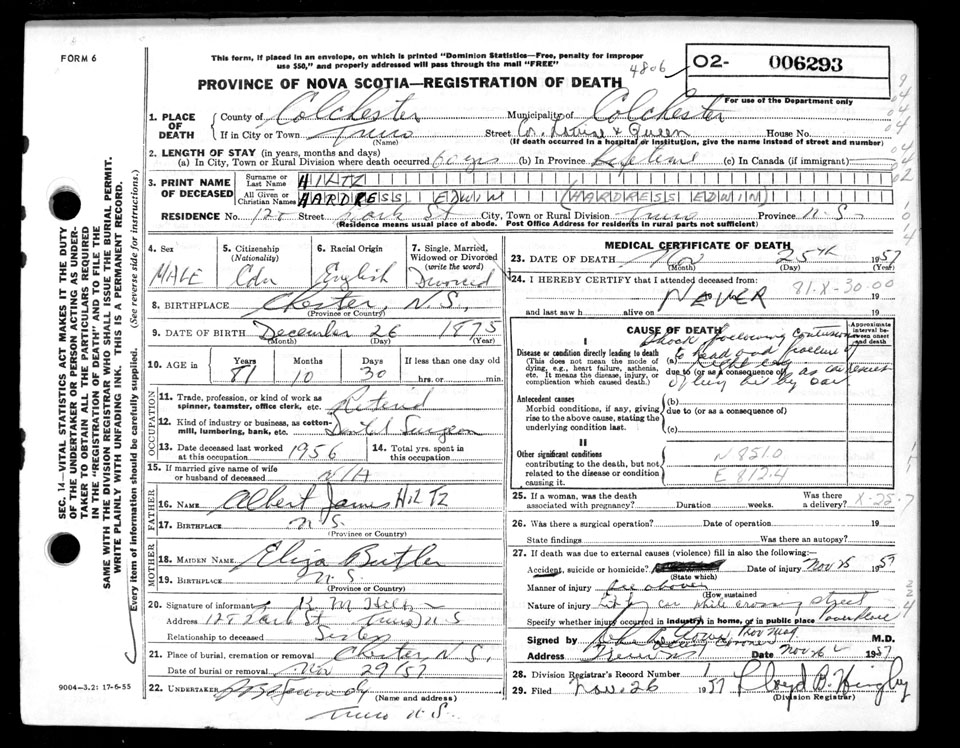 FORM 6
This form, if placed in an envelope, on which is printed "Dominion Statistics—Free, penalty for improper
use $50," and properly addressed will pass through the mail "FREE"
4806
PROVINCE OF NOVA SCOTIA—REGISTRATION OF DEATH
02- 006293
For use of the Department only
1. PLACE OF DEATH
County of Colchester Municipality of Colchester
If in City or Town Truro Street Cor. & Queen House No.
(Name) (If death occurred in a hospital or institution, give the name instead of street and number)
2. LENGTH OF STAY (in years, months and days)
(a) In City, Town or Rural Division where death occurred 60 yrs (b) In Province Lifetime (c) In Canada (if immigrant)
3. PRINT NAME OF DECEASED
Surname or Last Name HILTZ
All Given or Christian Names HARDRESS EDWIN (HARDRESS EDWIN)
RESIDENCE No. 127 Street St City, Town or Rural Division Truro Province N.S.
(Residence means usual place of abode. Post Office Address for residents in rural parts not sufficient)
4. Sex MALE
5. Citizenship (Nationality) Cdn
6. Racial Origin English
7. Single, Married, Widowed or Divorced (write the word) Divorced
8. BIRTHPLACE Chester, N.S.
(Province or Country)
9. DATE OF BIRTH December 26 1875
(Month) (Day) (Year)
10. AGE in Years 81 Months 10 Days 30 If less than one day old hrs. or min.
OCCUPATION
11. Trade, profession, or kind of work as spinner, teamster, office clerk, etc. Retired
12. Kind of industry or business, as cotton-mill, lumbering, bank, etc. Dental Surgeon
13. Date deceased last worked at this occupation 1956
14. Total yrs. spent in this occupation
15. If married give name of wife or husband of deceased N/A
FATHER
16. NAME Albert James HILTZ
17. BIRTHPLACE N.S.
(Province or Country)
MOTHER
18. MAIDEN NAME Eliza Butler
19. BIRTHPLACE N.S.
(Province or Country)
20. Signature of informant K M
Address 127 St Truro N.S
Relationship to deceased Sister
21. Place of burial, cremation or removal Chester, N.S.
Date of burial or removal Nov 29/57
22. UNDERTAKER Kennedy
(Name and address)
Truro N.S.
MEDICAL CERTIFICATE OF DEATH
23. DATE OF DEATH Nov 25th 1957
(Month) (Day) (Year)
24. I HEREBY CERTIFY that I attended deceased from: 81-X-30-00
NEVER 19
and last saw h alive on 19
CAUSE OF DEATH
Approximate interval between onset and death
I
Disease or condition directly leading to death
(This does not mean the mode of dying, e.g., heart failure, asthenia, etc. It means the disease, injury, or complication which caused death.)
Shock following contusions
to head and fracture of
(a) right leg
due to (or as a consequence of) as a result
of being hit by car
Antecedent causes
Morbid conditions, if any, giving rise to the above cause, stating the underlying condition last.
(b)
due to (or as a consequence of)
(c)
II
Other significant conditions
contributing to the death, but not related to the disease or condition causing it.
N 851.0
E 812.4
25. If a woman, was the death associated with pregnancy? Duration weeks. Was there a delivery? X-25-7
26. Was there a surgical operation? Date of operation 19
State findings Was there an autopsy?
27. If death was due to external causes (violence) fill in also the following:
Accident, suicide or homicide? Date of injury Nov 25 1957
(State which)
Manner of injury See above
(How sustained)
Nature of injury Hit by car while crossing street
Specify whether injury occurred in industry in home, or in public place
Signed by M.D.
Address Truro NS Date Nov 26 1957
28. Division Registrar's Record Number
29. Filed Nov. 26 1957 Lloyd B.
(Division Registrar)
SEC. 14—VITAL STATISTICS ACT MAKES IT THE DUTY
OF THE UNDERTAKER OR PERSON ACTING AS UNDER-
TAKER TO OBTAIN ALL THE PARTICULARS REQUIRED
IN THE "REGISTRATION OF DEATH" AND TO FILE THE
SAME WITH THE DIVISION REGISTRAR WHO SHALL ISSUE THE BURIAL PERMIT.
WRITE PLAINLY WITH UNFADING INK. THIS IS A PERMANENT RECORD.
Every item of information should be carefully supplied. (See reverse side for instructions.)
9004—3.2: 17-6-55